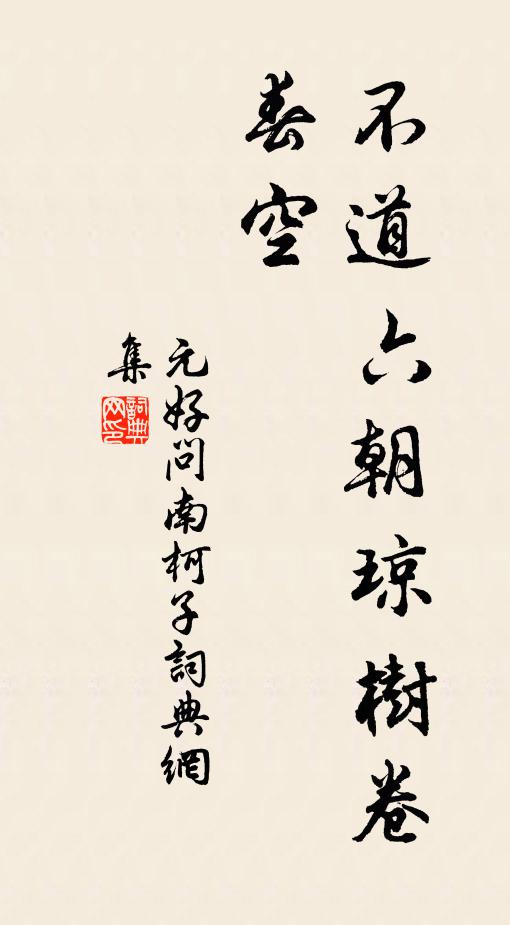 不道六朝琼樹卷
春空
元好问南柯子詞典網
集
詞典
网印